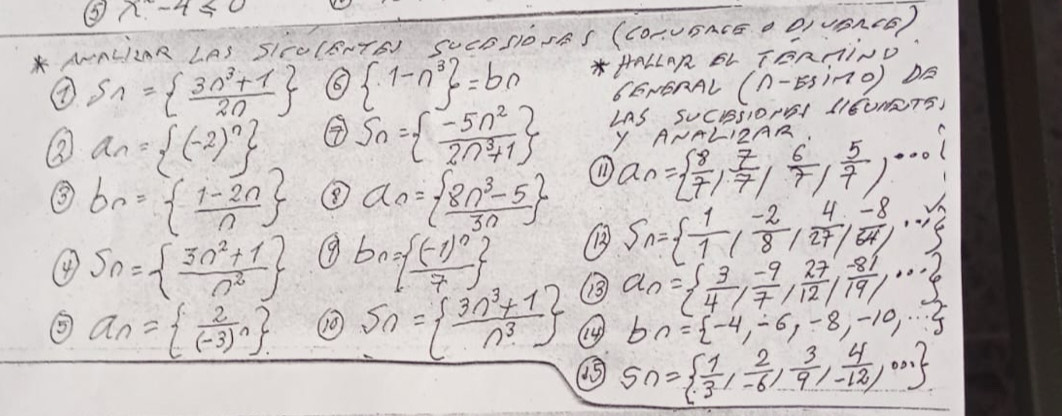 ⑤ x²-4≤0
* ANALIZAR LAS SIGUIENTES SUCESIONES (CONVERGE O DIVERGE)
① Sn = {3n³+1/2n}
② an = {(-2)ⁿ}
③ bn = {1-2n/n}
④ Sn = {3n²+1/n²}
⑤ an = {2/(-3)ⁿ}
⑥ {1-n³} = bn
⑦ Sn = {-5n²/2n³+1}
⑧ an = {8n³-5/3n}
⑨ bn = {(-1)ⁿ/7}
⑩ Sn = {3n³+1/n³}
* HALLAR EL TERMINO
GENERAL (n-ESIMO) DE
LAS SUCESIONES SIGUIENTES
Y ANALIZAR.
⑪ an = {8/7, 7/7, 6/7, 5/7, ...}
⑫ Sn = {1/1, -2/8, 4/27, -8/64, ...}
⑬ an = {3/4, -9/7, 27/12, -81/19, ...}
⑭ bn = {-4, -6, -8, -10, ...}
⑮ Sn = {1/3, 2/-6, 3/9, 4/-12, ...}